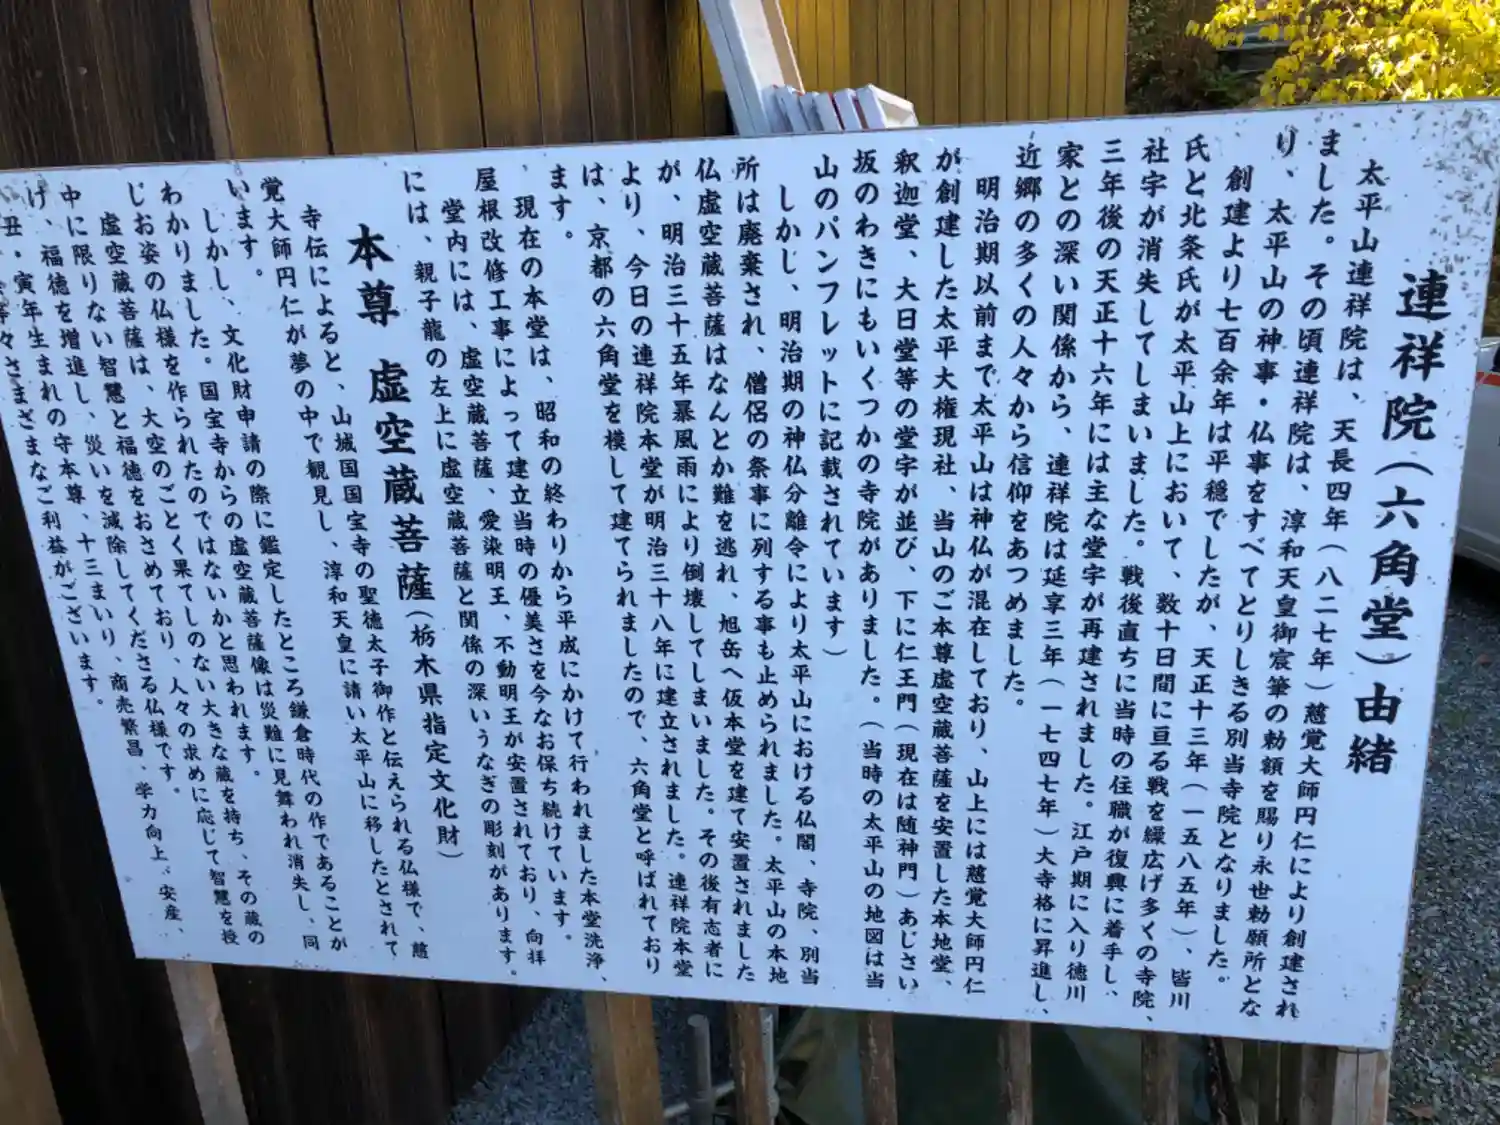 連祥院(六角堂)由緒
太平山連祥院は、天長四年(八二七年)慈覚大師円仁により創建され
ました。その頃連祥院は、淳和天皇御宸筆の勅額を賜り永世勅願所とな
り、太平山の神事・仏事をすべてとりしきる別当寺院となりました。
創建より七百余年は平穏でしたが、天正十三年(一五八五年)、皆川
氏と北条氏が太平山上において、数十日間に亘る戦を繰広げ多くの寺院、
社宇が消失してしまいました。戦後直ちに当時の住職が復興に着手し、
三年後の天正十六年には主な堂宇が再建されました。江戸期に入り徳川
家との深い関係から、連祥院は延享三年(一七四七年)大寺格に昇進し、
近郷の多くの人々から信仰をあつめました。
明治期以前まで太平山は神仏が混在しており、山上には慈覚大師円仁
が創建した太平大権現社、当山のご本尊虚空蔵菩薩を安置した本地堂、
釈迦堂、大日堂等の堂宇が並び、下に仁王門(現在は随神門)あじさい
坂のわきにもいくつかの寺院がありました。(当時の太平山の地図は当
山のパンフレットに記載されています)
しかし、明治期の神仏分離令により太平山における仏閣、寺院、別当
所は廃棄され、僧侶の祭事に列する事も止められました。太平山の本地
仏虚空蔵菩薩はなんとか難を逃れ、旭岳へ仮本堂を建て安置されました
が、明治三十五年暴風雨により倒壊してしまいました。その後有志者に
より、今日の連祥院本堂が明治三十八年に建立されました。連祥院本堂
は、京都の六角堂を模して建てられましたので、六角堂と呼ばれており
ます。
現在の本堂は、昭和の終わりから平成にかけて行われました本堂洗浄、
屋根改修工事によって建立当時の優美さを今なお保ち続けています。
堂内には、虚空蔵菩薩、愛染明王、不動明王が安置されており、向拝
には、親子龍の左上に虚空蔵菩薩と関係の深いうなぎの彫刻があります。
本尊 虚空蔵菩薩(栃木県指定文化財)
寺伝によると、山城国国宝寺の聖徳太子御作と伝えられる仏様で、慈
覚大師円仁が夢の中で観見し、淳和天皇に請い太平山に移したとされて
います。
しかし、文化財申請の際に鑑定したところ鎌倉時代の作であることが
わかりました。国宝寺からの虚空蔵菩薩像は災難に見舞われ消失し、同
じお姿の仏様を作られたのではないかと思われます。
虚空蔵菩薩は、大空のごとく果てしのない大きな蔵を持ち、その蔵の
中に限りない智慧と福徳をおさめており、人々の求めに応じて智慧を授
け、福徳を増進し、災いを減除してくださる仏様です。
丑・寅年生まれの守本尊、十三まいり、商売繁昌、学力向上、安産、
等々さまざまなご利益がございます。